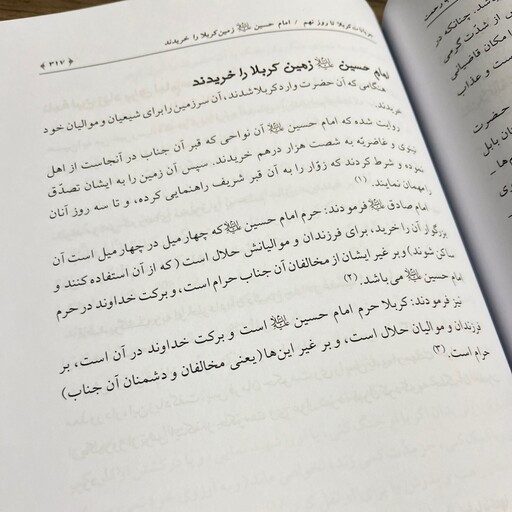 جریانات کربلا تا روز نهم / امام حسین علیه‌السلام زمین کربلا را خریدند ﴿۳۱۷﴾
امام حسین علیه‌السلام زمین کربلا را خریدند
هنگامی که آن حضرت وارد کربلا شدند، آن سرزمین را برای شیعیان و موالیان خود
خریدند.
روایت شده که امام حسین علیه‌السلام آن نواحی که قبر آن جناب در آنجاست از اهل
نینوی و غاضریّه به شصت هزار درهم خریدند. سپس آن زمین را به ایشان تصدّق
نموده و شرط کردند که زوّار را به آن قبر شریف راهنمایی کرده، و تا سه روز آنان
را مهمان نمایند. (۱)
امام صادق علیه‌السلام فرمودند: حرم امام حسین علیه‌السلام که چهار میل در چهار میل است آن
بزرگوار آن را خرید، برای فرزندان و موالیانش حلال است (که از آن استفاده کنند و
ساکن شوند) و بر غیر ایشان از مخالفان آن جناب حرام است، و برکت خداوند در حرم
امام حسین علیه‌السلام می باشد. (۲)
نیز فرمودند: کربلا حرم امام حسین علیه‌السلام است و برکت خداوند در آن است، بر
فرزندان و موالیان حلال است، و بر غیر این‌ها (یعنی مخالفان و دشمنان آن جناب)
حرام است. (۳)
چنانکه در
از شدّت گرمی
مکان قاضیانی
ست و عذاب
حضرت
بابل